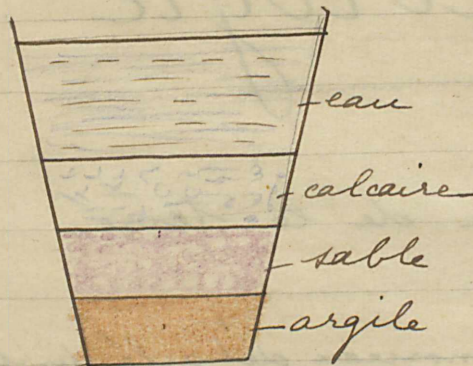 eau
calcaire
sable
argile